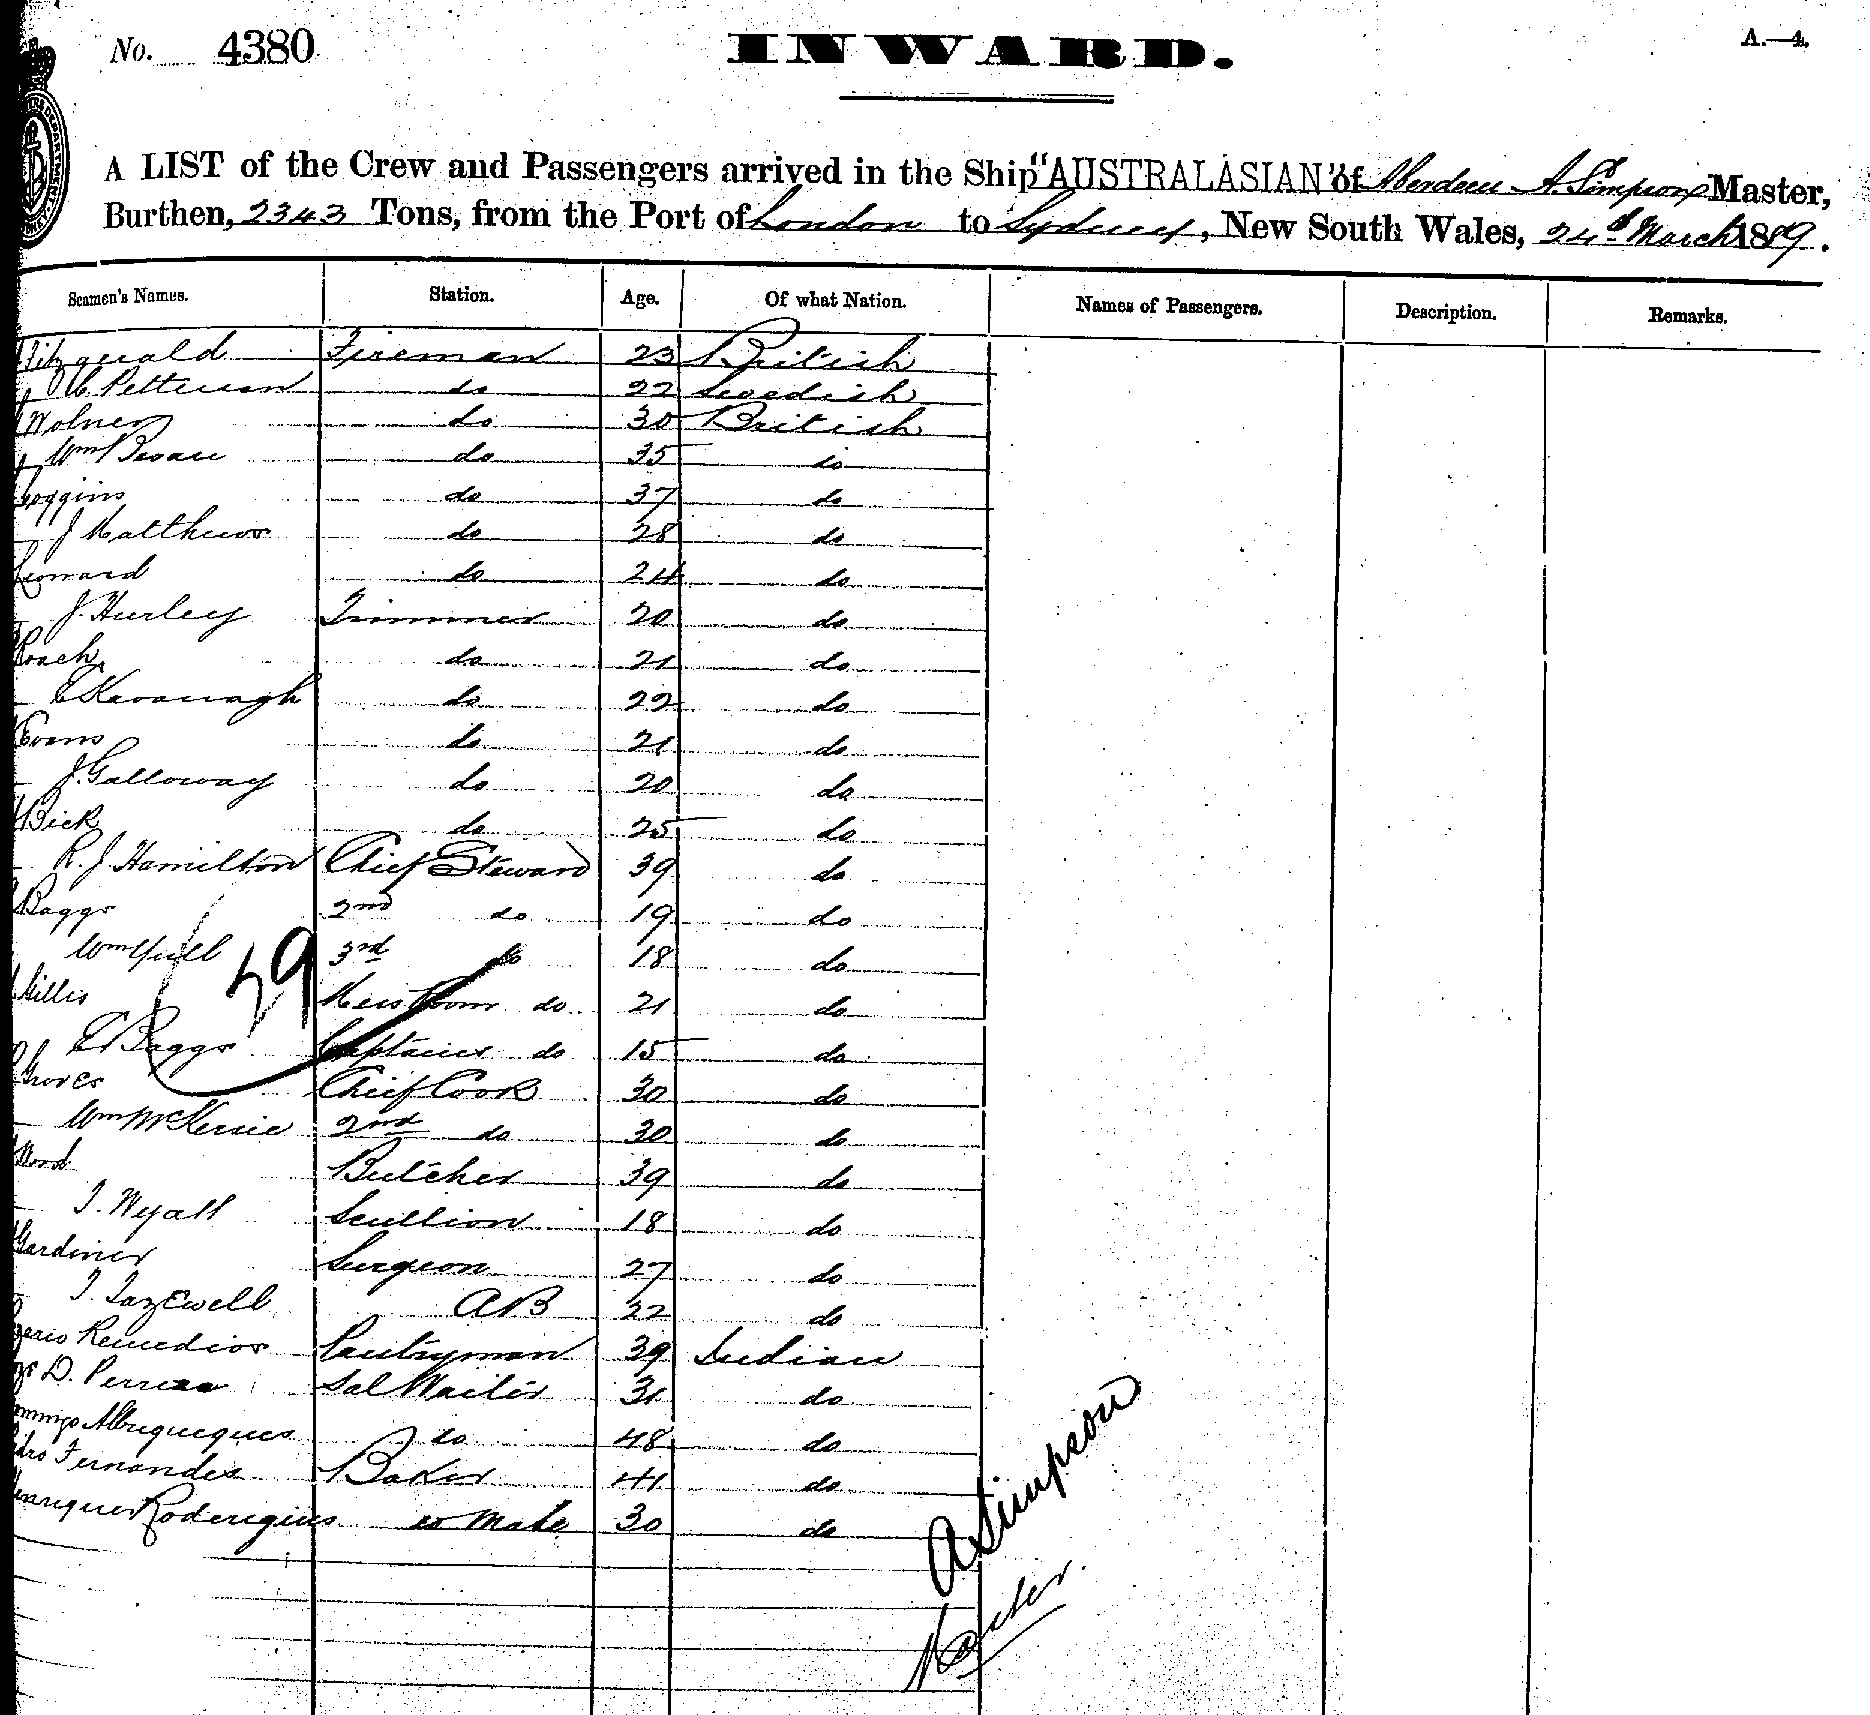 No. 4380
INWARD.
A.—4.
A LIST of the Crew and Passengers arrived in the Ship "AUSTRALASIAN" of Aberdeen A. Simpson Master,
Burthen, 2343 Tons, from the Port of London to Sydney, New South Wales, 24th March 1889.
Seamen's Names. Station. Age. Of what Nation. Names of Passengers. Description. Remarks.
Fitzgerald Fireman 23 British
Petterson do 22 Swedish
do 30 British
Wm do 35 do
Coggins do 37 do
J Matthews do 28 do
Leonard do 24 do
J. Hurley Trimmer 20 do
Roach do 21 do
C Kavanagh do 22 do
Evans do 21 do
J. Galloway do 20 do
Bick do 25 do
R. J. Hamilton Chief Steward 39 do
Baggs 2nd do 19 do
Wm 3rd do 18 do
59
Messroom do 21 do
C Baggs Captains do 15 do
Groves Chief Cook 30 do
Wm McKenzie 2nd do 30 do
Wood Butcher 39 do
J. Wyatt Scullion 18 do
Gardiner Surgeon 27 do
J. Jazewell AB 22 do
Remedios Pantryman 39 Indian
D. Perriea Sal Waiter 31 do
Albuquerques do 48 do
Fernandes Baker 41 do
Roderigues do Mate 30 do
A Simpson
Master.